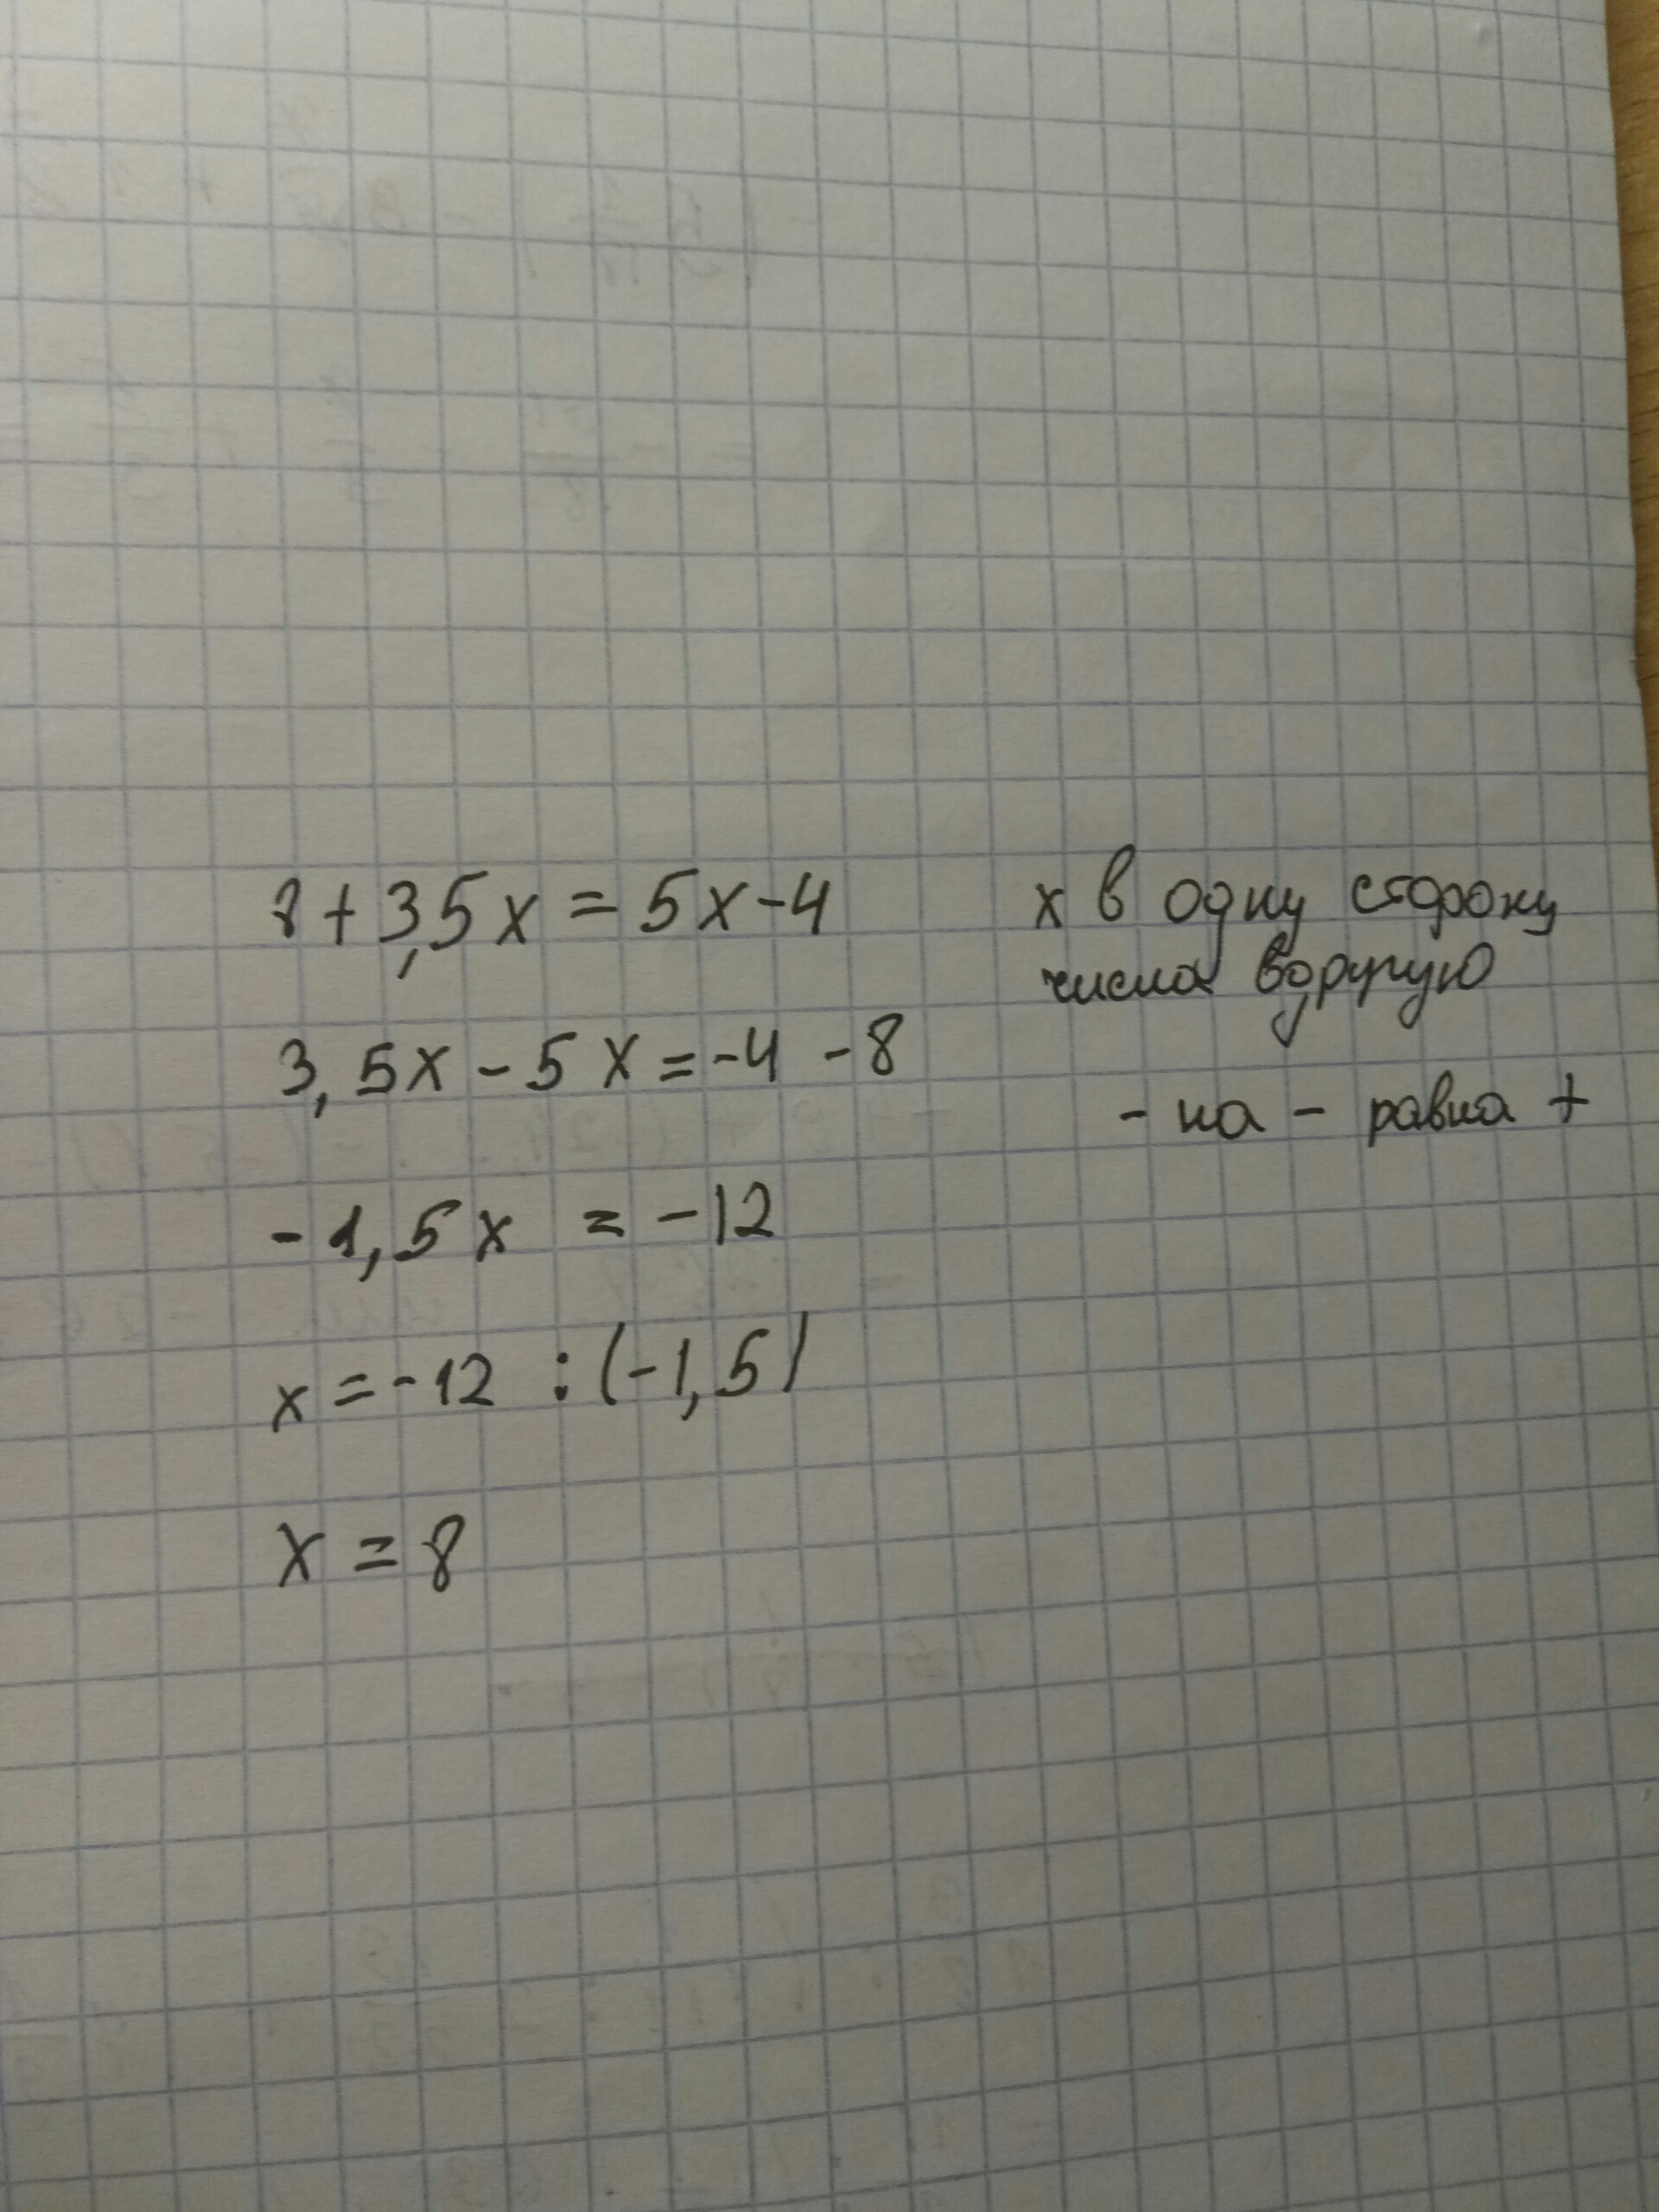 8+3,5x=5x-4
x в одну сторону
числа вдругую
3,5x-5x=-4-8
- на - равна +
-1,5x=-12
x=-12:(-1,5)
x=8